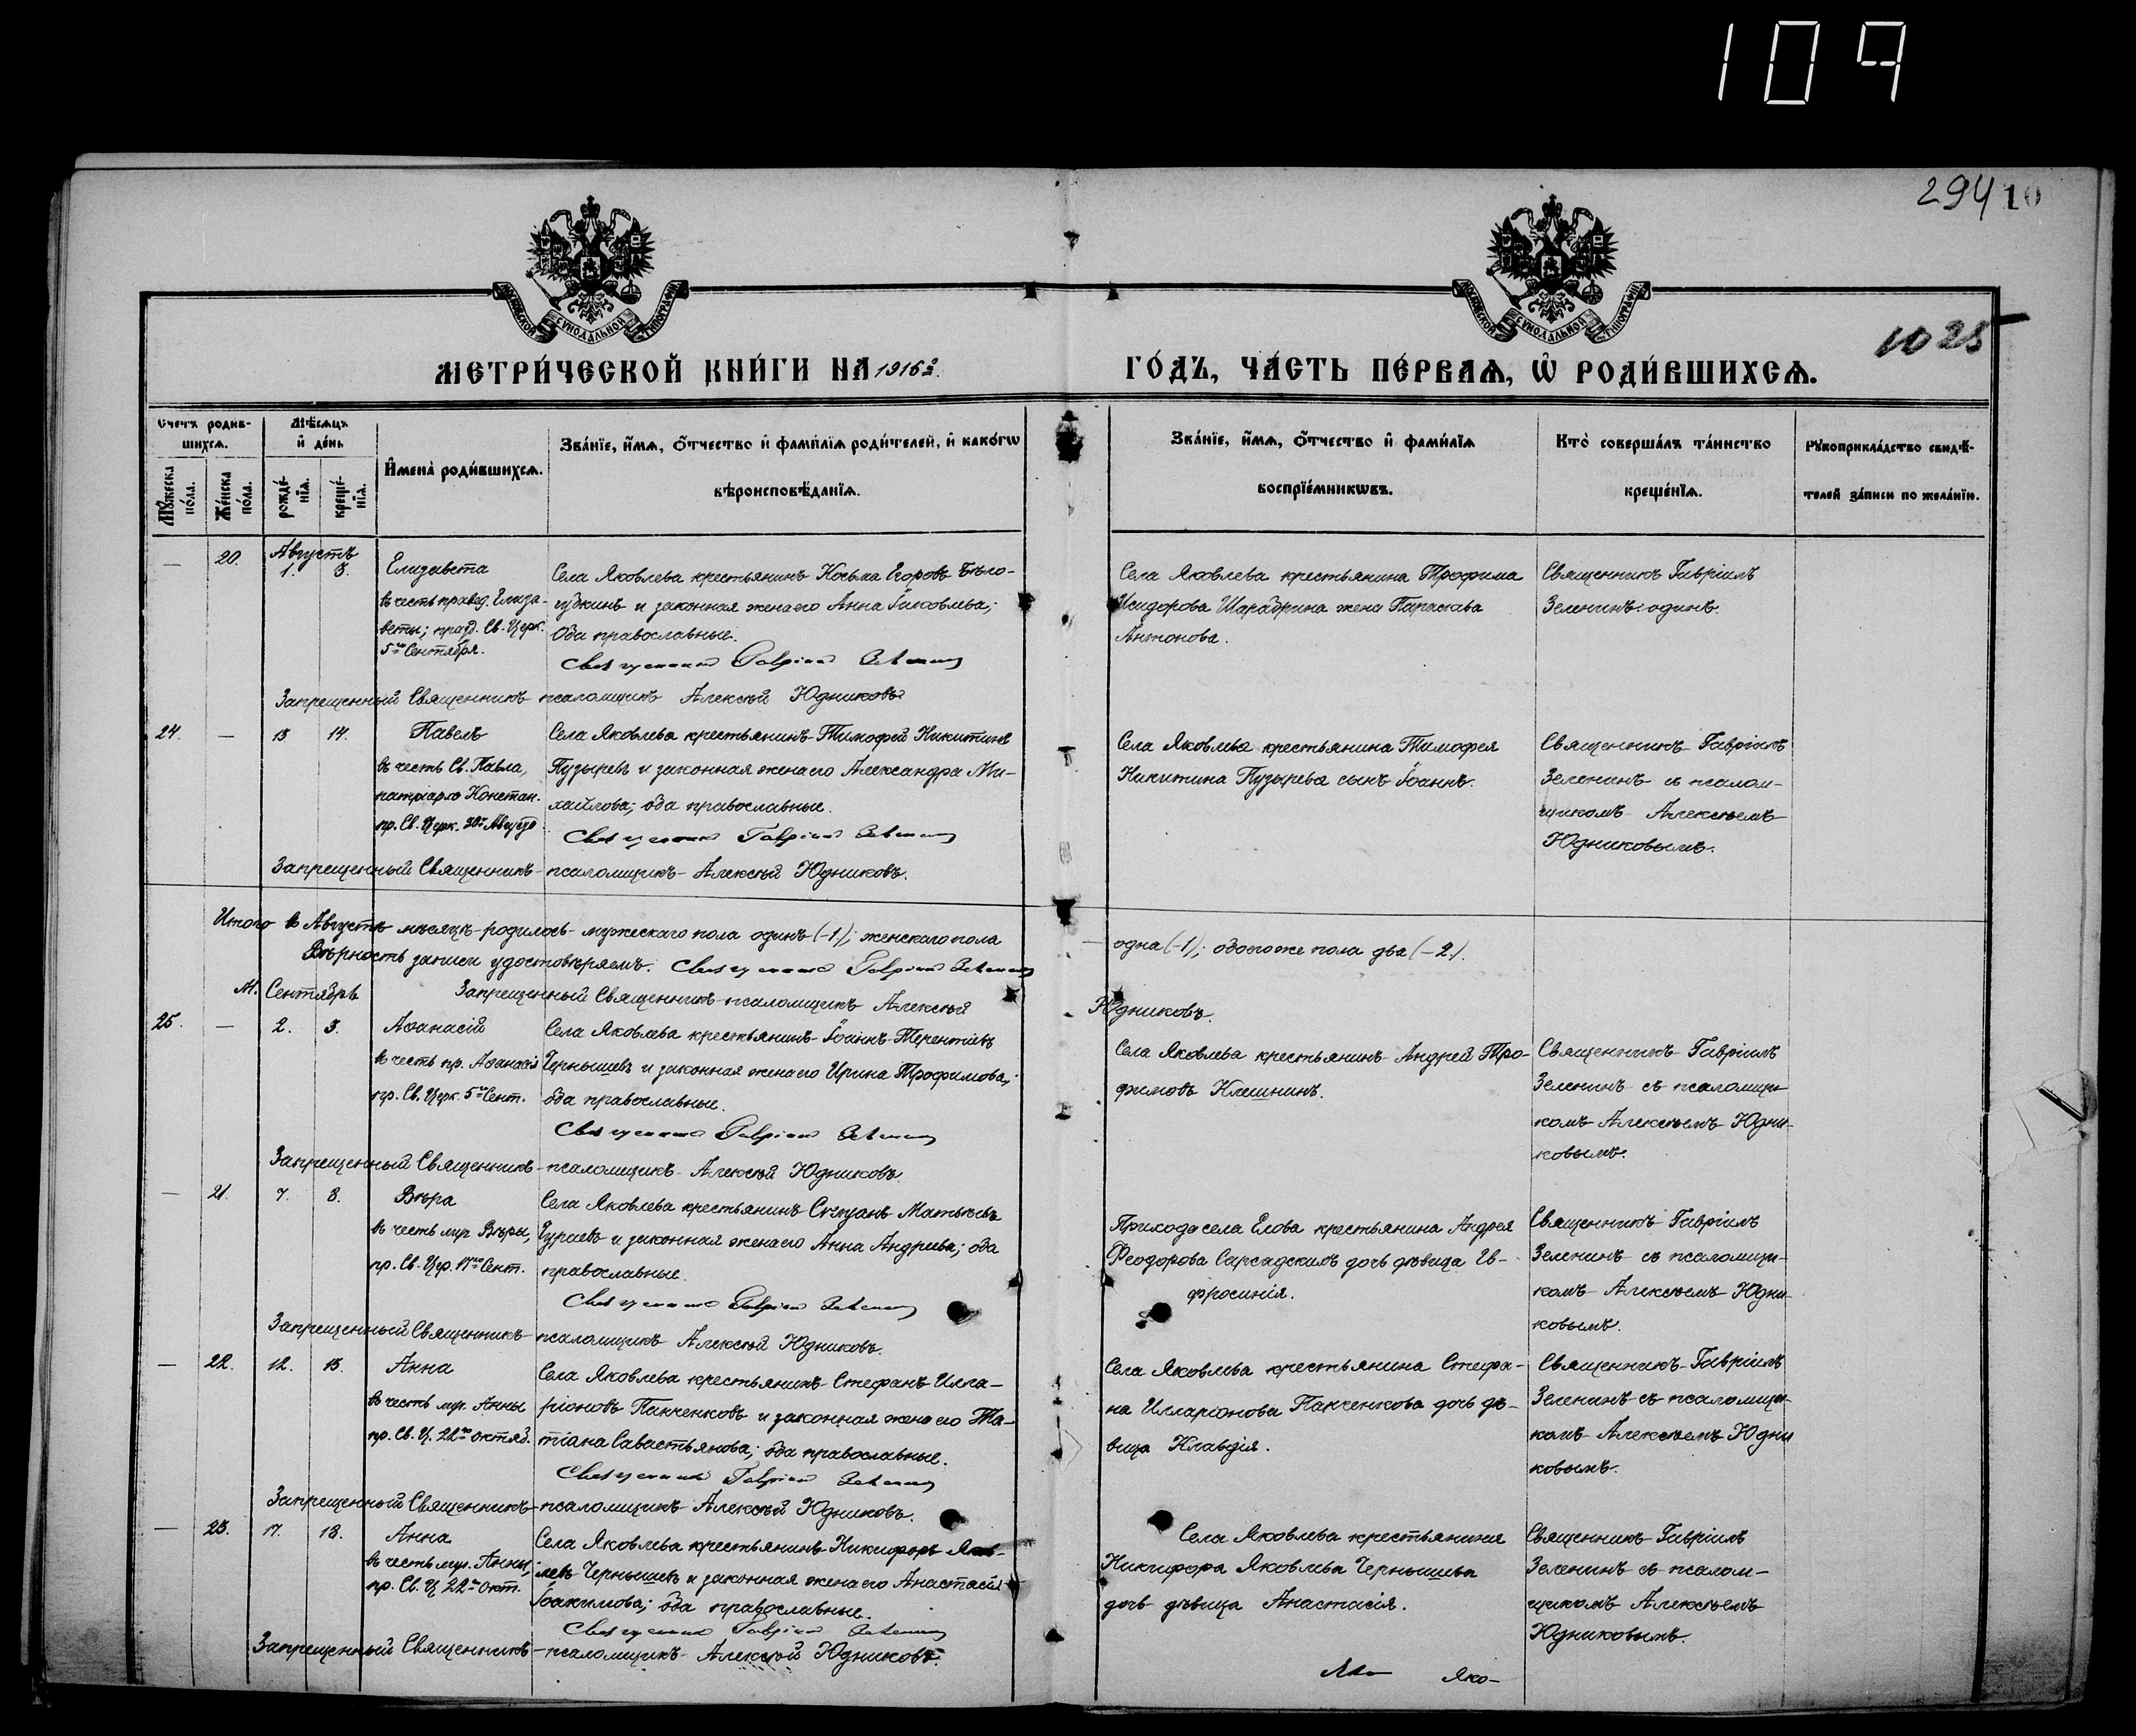 109
294 10
1025
МОСКОВСКОЙ СУНОДАЛЬНОЙ ТИПОГРАФІИ
МОСКОВСКОЙ СУНОДАЛЬНОЙ ТИПОГРАФІИ
МЕТРИ́ЧЕСКОЙ КНИ́ГИ НА 1916 й.
ГО́ДЪ, ЧА́СТЬ ПЕ́РВАѦ, Ѡ РОДИ́ВШИХСѦ.
Счетъ родив-
шихсѧ.
Мѣ́сѧцъ
и҆ де́нь
Мꙋ́жеска по́ла.
Же́нска по́ла.
рожде́-нїѧ.
креще́-нїѧ.
И҆мена̀ роди́вшихсѧ.
Зва́нїе, и҆́мѧ, о҆́тчество и҆ фами́лїѧ роди́телей, и҆ како́гѡ
вѣроисповѣ́данїѧ.
Зва́нїе, и҆́мѧ, о҆́тчество и҆ фами́лїѧ
воспрїе́мникѡвъ.
Кто̀ соверша́лъ та́инство
креще́нїѧ.
Рꙋкоприкла́дство свидѣ́-
телей за́писи по жела́нїю.
Августъ
— 20. 1. 3. Елизавета
въ честь правед. Елиза-
веты; празд. Св. Церк.
5го Сентября.
Села Яковлева крестьянинъ Косьма Егоровъ Бѣло-
губкинъ и законная жена его Анна Іаковлева;
оба православные.
Священникъ Гавріилъ Зеленинъ
Села Яковлева крестьянина Трофима
Исидорова Шарабрина жена Параскева
Антонова.
Священникъ Гавріилъ
Зеленинъ одинъ.
Запрещенный Священникъ псаломщикъ Алексѣй Юдниковъ
24. — 13 14. Павелъ
въ честь Св. Павла,
патріарха Констан.
пр. Св. Церк. 30го Августа.
Села Яковлева крестьянинъ Тимофей Никитинъ
Пузыревъ и законная жена его Александра Ми-
хайлова; оба православные.
Священникъ Гавріилъ Зеленинъ
Села Яковлева крестьянина Тимофея
Никитина Пузырева сынъ Іоаннъ.
Священникъ Гавріилъ
Зеленинъ съ псалом-
щикомъ Алексѣемъ
Юдниковымъ.
Запрещенный Священникъ-псаломщикъ Алексѣй Юдниковъ.
Итого въ Августѣ мѣсяцѣ родилось мужескаго пола одинъ (-1); женскаго пола
— одна (-1); обоего же пола два (-2).
Вѣрность записи удостовѣряемъ. Священникъ Гавріилъ Зеленинъ
Запрещенный Священникъ-псаломщикъ Алексѣй
Юдниковъ.
М. Сентябрь
25. — 2. 3. Аѳанасій
въ честь пр. Аѳанасія
пр. Св. Церк. 5го Сент.
Села Яковлева крестьянинъ Іоаннъ Терентіевъ
Чернышевъ и законная жена его Ирина Трофимова;
оба православные.
Священникъ Гавріилъ Зеленинъ
Села Яковлева крестьянинъ Андрей Тро-
фимовъ Клешнинъ.
Священникъ Гавріилъ
Зеленинъ съ псаломщи-
комъ Алексѣемъ Юдни-
ковымъ.
Запрещенный Священникъ-псаломщикъ Алексѣй Юдниковъ.
— 21. 7. 8. Вѣра
въ честь муч. Вѣры,
пр. Св. Цер. 17го Сент.
Села Яковлева крестьянинъ Стефанъ Матвѣевъ
Чураевъ и законная жена его Анна Андреева; оба
православные.
Священникъ Гавріилъ Зеленинъ
Прихода села Елова крестьянина Андрея
Феодорова Сарсадскихъ дочь дѣвица Ев-
фросинія.
Священникъ Гавріилъ
Зеленинъ съ псаломщи-
комъ Алексѣемъ Юдни-
ковымъ.
Запрещенный Священникъ-псаломщикъ Алексѣй Юдниковъ.
— 22. 12. 13. Анна
въ честь муч. Анны
пр. Св. Ц. 22го октяб.
Села Яковлева крестьянинъ Стефанъ Илла-
ріоновъ Панченковъ и законная жена его Та-
тіана Савастьянова; оба православные.
Священникъ Гавріилъ Зеленинъ
Села Яковлева крестьянина Стефа-
на Илларіонова Панченкова дочь дѣ-
вица Клавдія.
Священникъ Гавріилъ
Зеленинъ съ псаломщи-
комъ Алексѣемъ Юдни
ковымъ.
Запрещенный Священникъ-псаломщикъ Алексѣй Юдниковъ.
— 23. 17. 18. Анна
въ честь муч. Анны;
пр. Св. Ц. 22го окт.
Села Яковлева крестьянинъ Никифоръ Яков-
левъ Чернышевъ и законная жена его Анастасія
Іоакимова; оба православные.
Священникъ Гавріилъ Зеленинъ
Села Яковлева крестьянина
Никифора Яковлева Чернышева
дочь дѣвица Анастасія.
Священникъ Гавріилъ
Зеленинъ съ псалом-
щикомъ Алексѣемъ
Юдниковымъ.
Запрещенный Священникъ-псаломщикъ Алексѣй Юдниковъ.
Яко-